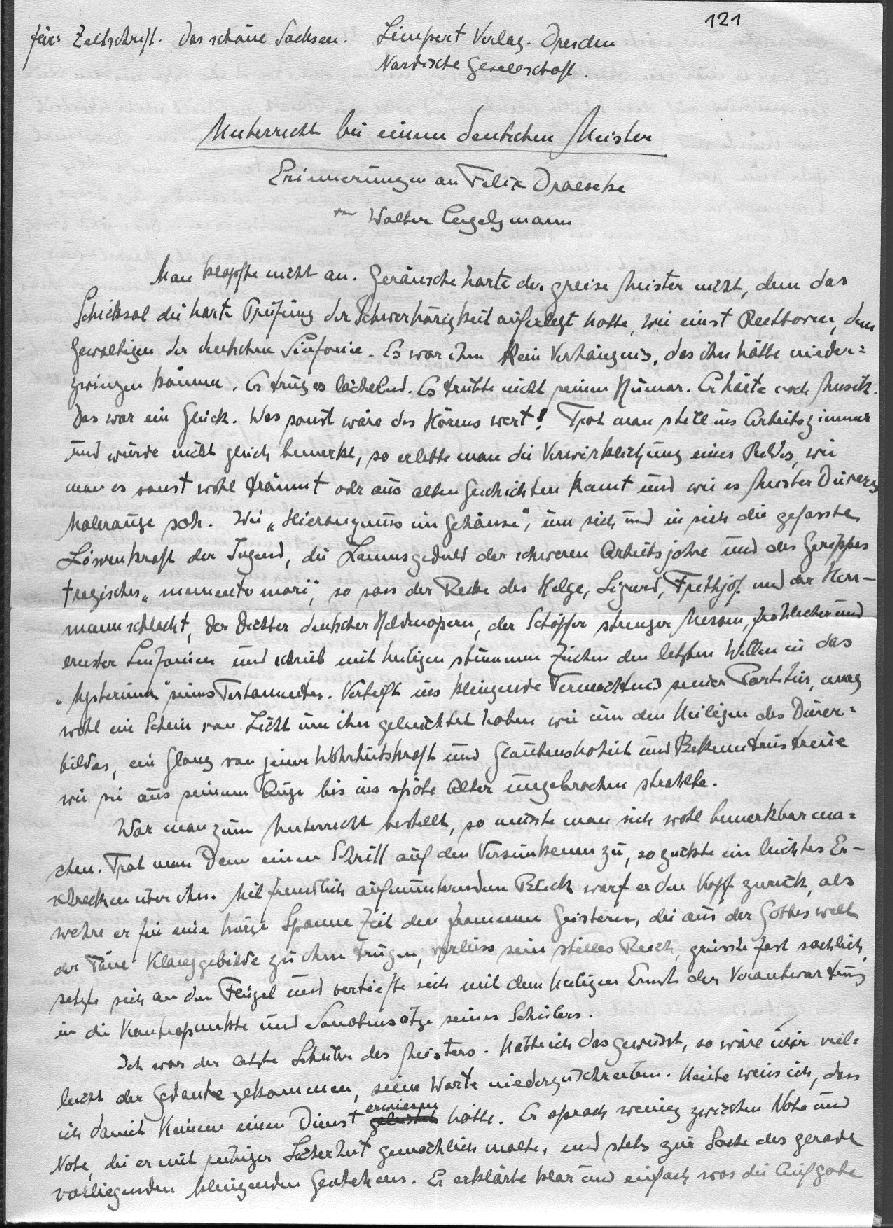 121
für: Zeitschrift. Das schöne Sachsen. Limpert Verlag. Dresden
Nordische Gesellschaft.
Unterricht bei einem deutschen Meister
Erinnerungen an Felix Draeseke
von Walter Engelsmann
Man klopfte nicht an. Geräusche hörte der greise Meister nicht, dem das
Schicksal die harte Prüfung der Schwerhörigkeit auferlegt hatte, wie einst Beethoven, dem
Gewaltigen der deutschen Sinfonie. Es war ihm kein Verhängnis, das ihn hätte nieder=
zwingen können. Er trug es lächelnd. Es trübte nicht seinen Humor. Er hörte noch Musik.
Das war ein Glück. Was sonst wäre des Hörens wert! Trat man still ins Arbeitszimmer
und wurde nicht gleich bemerkt, so erlebte man die Verwirklichung eines Bildes, wie
man es sonst wohl träumt oder aus alten Geschichten kennt und wie es Meister Dürers
Malerauge sah. Wie „Hieronymus im Gehäuse", um sich und in sich die gefasste
Löwenkraft der Jugend, die Lammsgeduld der schweren Arbeitsjahre und des Gerippes
tragisches „memento mori", so sass der Recke des Helge, Sigurd, Frithjof und der Herr=
mannschlacht, der Dichter deutscher Heldenopern, der Schöpfer strenger Messen, fröhlicher und
ernster Sinfonien und schrieb mit heiligen stummen Zeichen den letzten Willen in das
„Mysterium" seines Testamentes. Vertieft ins klingende Vermächtnis seiner Partitur, mag
wohl ein Schein von Licht um ihn geleuchtet haben wie um den Heiligen des Dürer=
bildes, ein Glanz von jener Wahrheitskraft und Glaubenshoheit und Bekenntnistreue
wie sie aus seinem Auge bis ins späte Alter ungebrochen strahlte.
War man zum Unterricht bestellt, so musste man sich wohl bemerkbar ma=
chen. Trat man dann einen Schritt auf den Versunkenen zu, so zuckte ein leichtes Er=
schrecken über ihn. Mit freundlich aufmunterndem Blick warf er den Kopf zurück, als
wehre er für eine kurze Spanne Zeit den frommen Geistern, die aus der Gotteswelt
der Töne Klanggebilde zu ihm trugen, verliess sein stilles Reich, grüsste fast sachlich,
setzte sich an den Flügel und vertiefte sich mit dem heiligen Ernst der Verantwortung
in die Kontrapunkte und Sonatensätze seines Schülers.
Ich war der letzte Schüler des Meisters. Hätte ich das gewusst, so wäre mir viel=
leicht der Gedanke gekommen, seine Worte niederzuschreiben. Heute weiss ich, dass
ich damit keinem einen Dienst erwiesen hätte. Er sprach wenig zwischen Note und
Note, die er mit ruhiger Sicherheit gemächlich malte, und stets zur Sache des gerade
vorliegenden klingenden Gedankens. Er erklärte klar und einfach was die Aufgabe